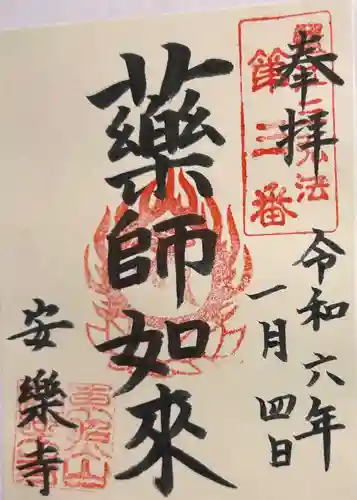 奉拝
第三番
令和六年
一月四日
藥師如來
安樂寺